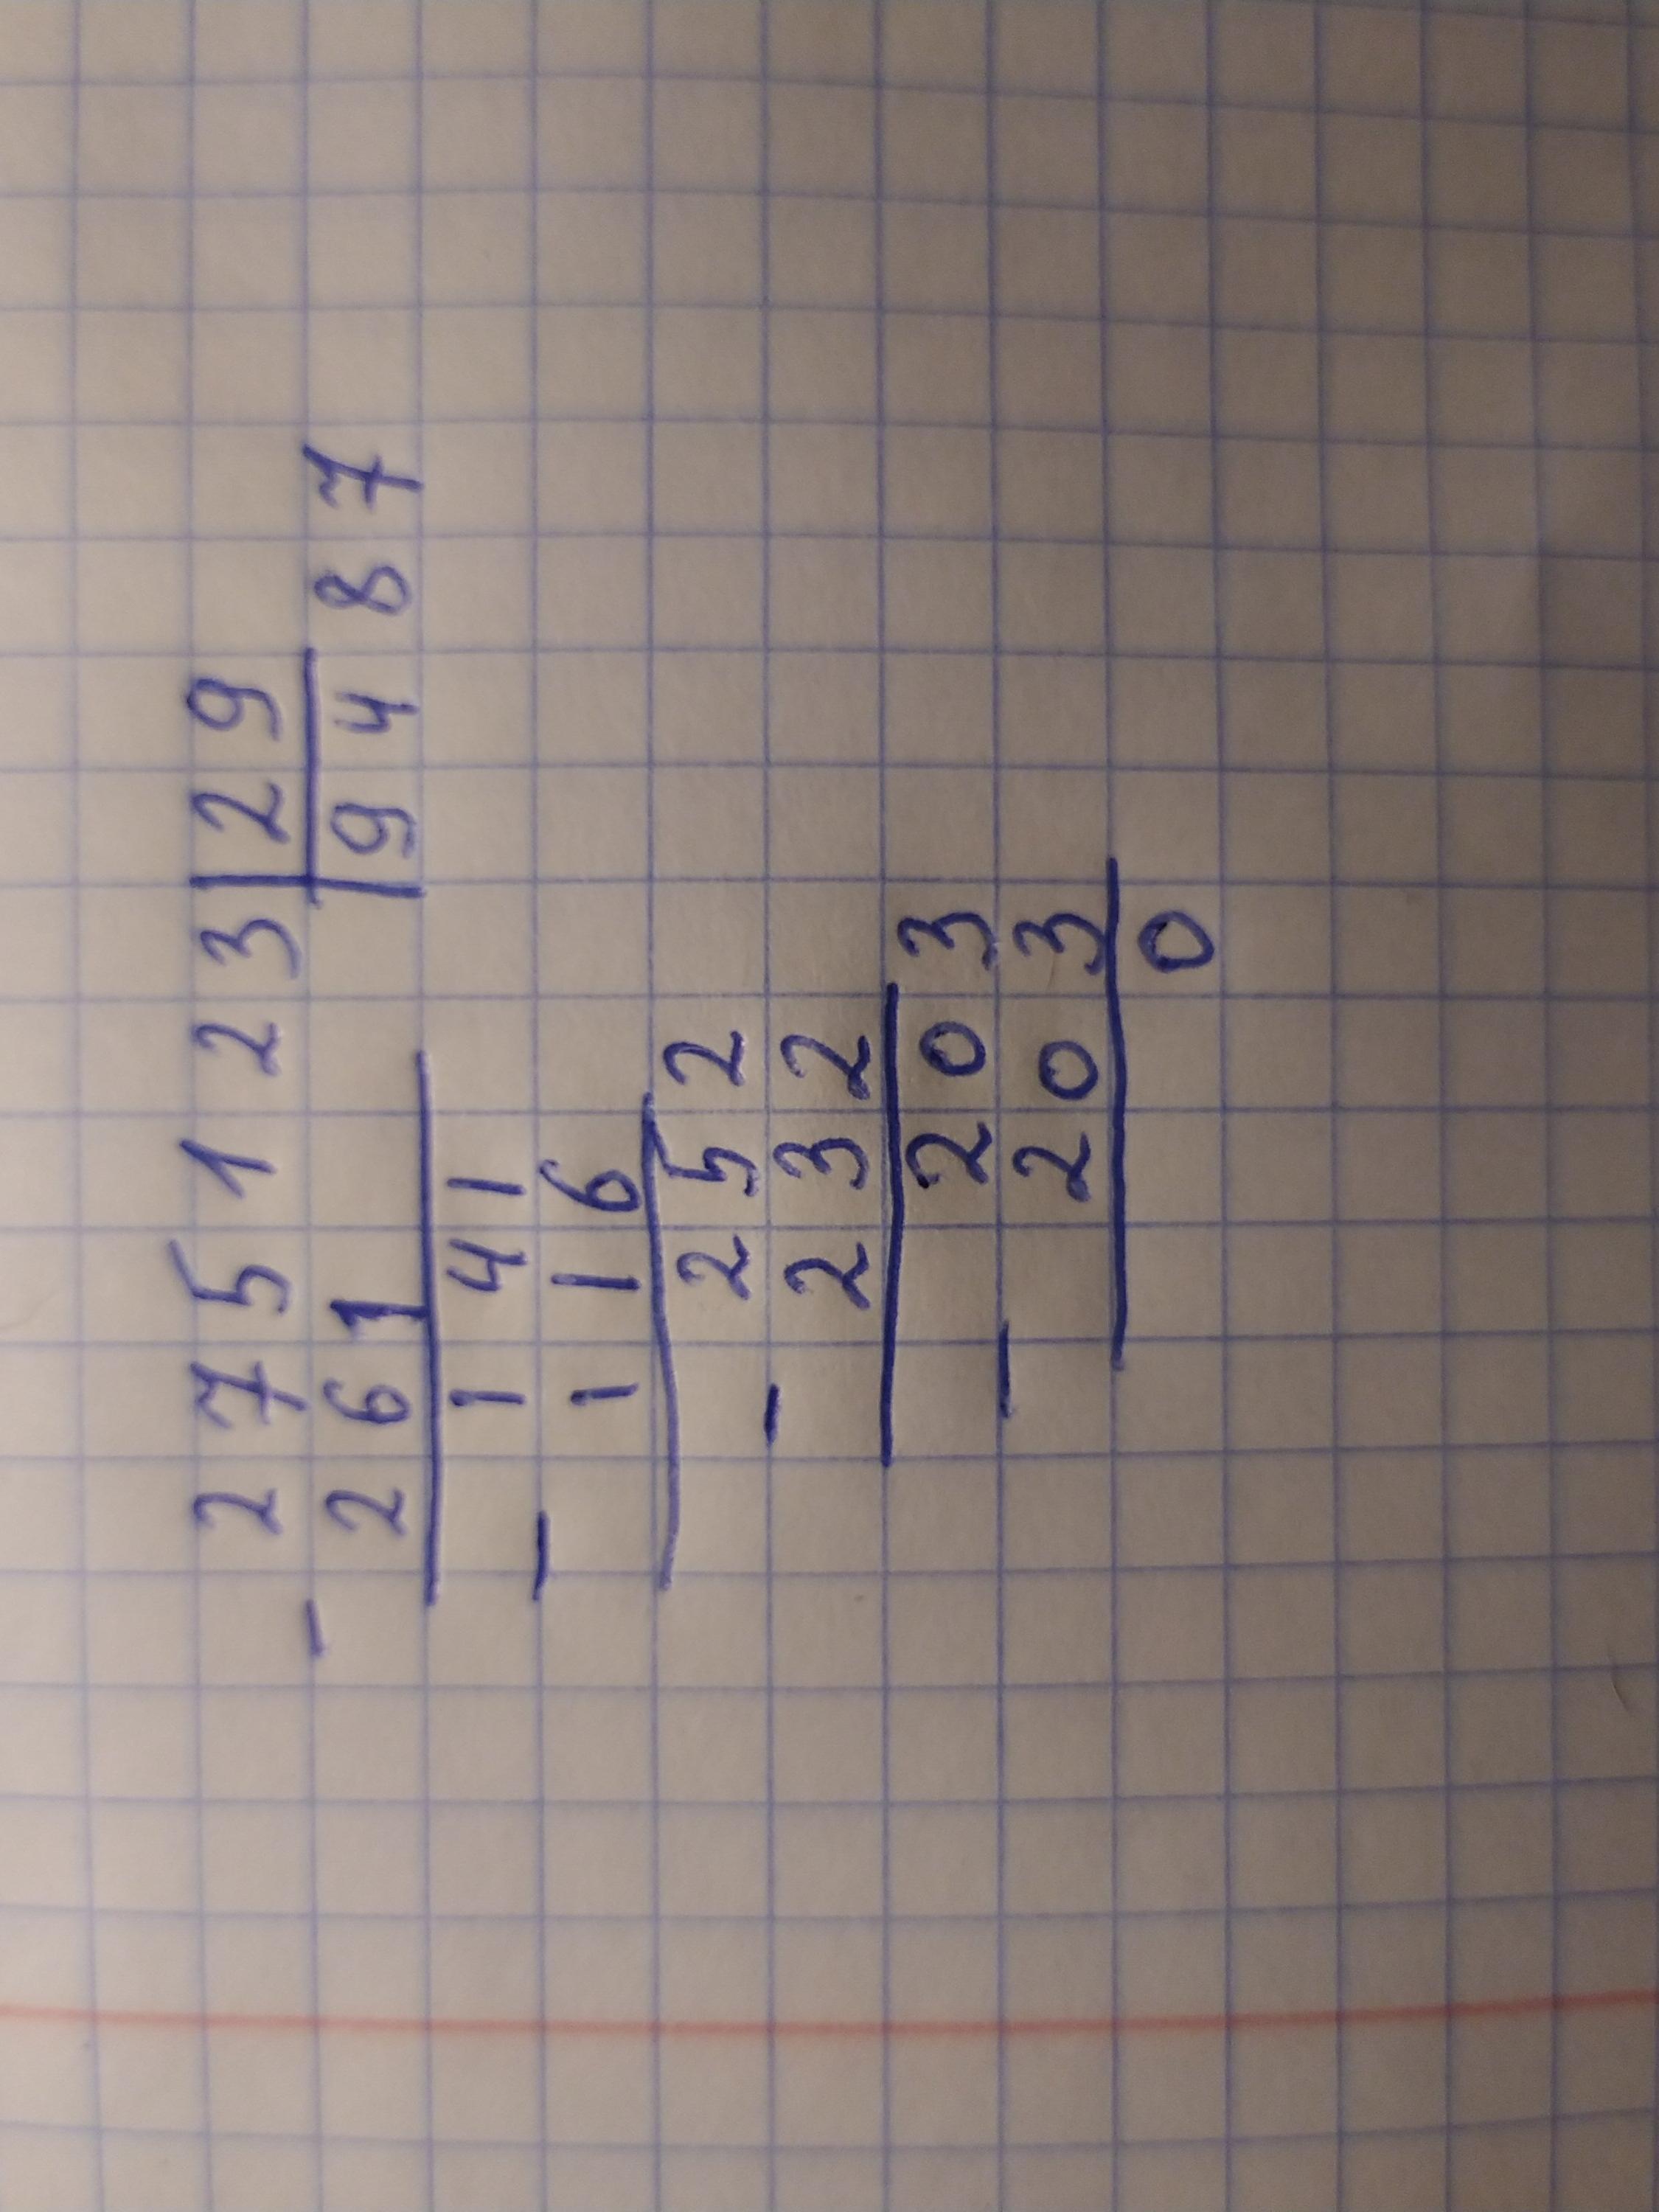 275123|29
- 261 |9487
141
- 116
252
- 232
203
- 203
0